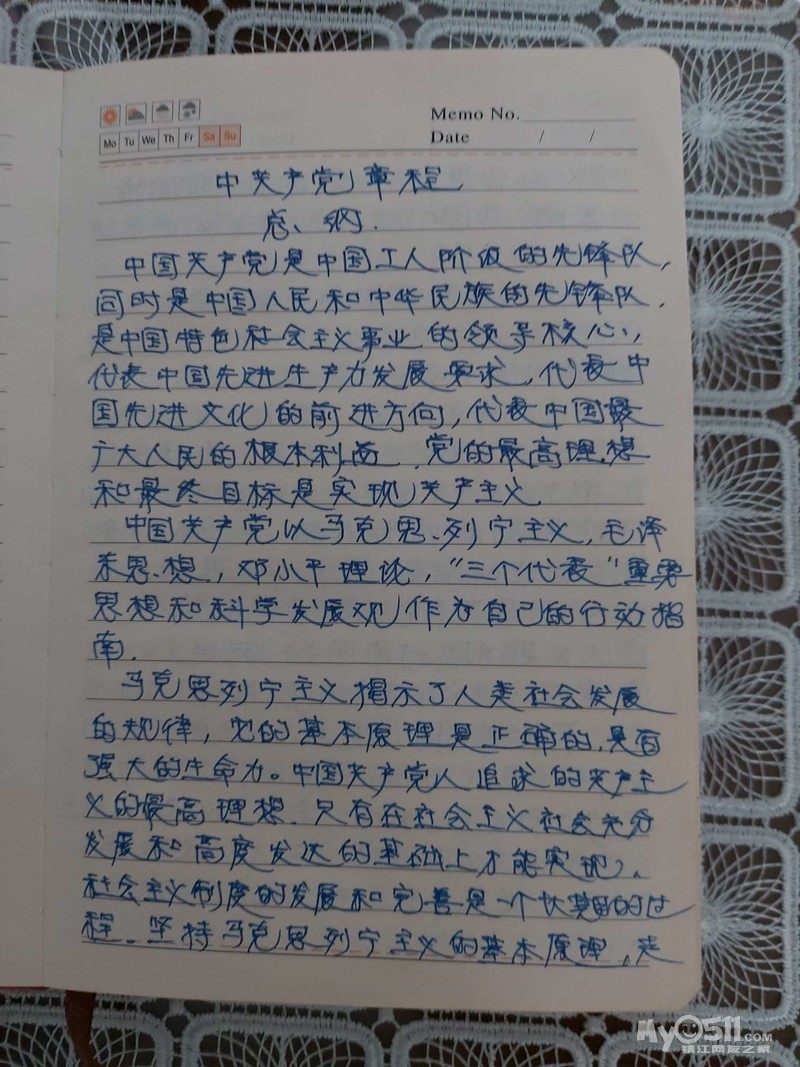 Memo No.
Mo Tu We Th Fr Sa Su
Date / /
中共产党章程
总纲.
中国共产党是中国工人阶级的先锋队,
同时是中国人民和中华民族的先锋队.
是中国特色社会主义事业的领导核心,
代表中国先进生产力发展要求,代表中
国先进文化的前进方向,代表中国最
广大人民的根本利益.党的最高理想
和最终目标是实现共产主义.
中国共产党以马克思、列宁主义,毛泽
东思想,邓小平理论,“三个代表”重要
思想和科学发展观作为自己的行动指
南.
马克思列宁主义揭示了人类社会发展
的规律,它的基本原理是正确的,具有
强大的生命力。中国共产党人追求的共产主
义的最高理想.只有在社会主义社会充分
发展和高度发达的基础上才能实现.
社会主义制度的发展和完善是一个长期的过
程.坚持马克思列宁主义的基本原理,走
My0511.COM
镇江网友之家